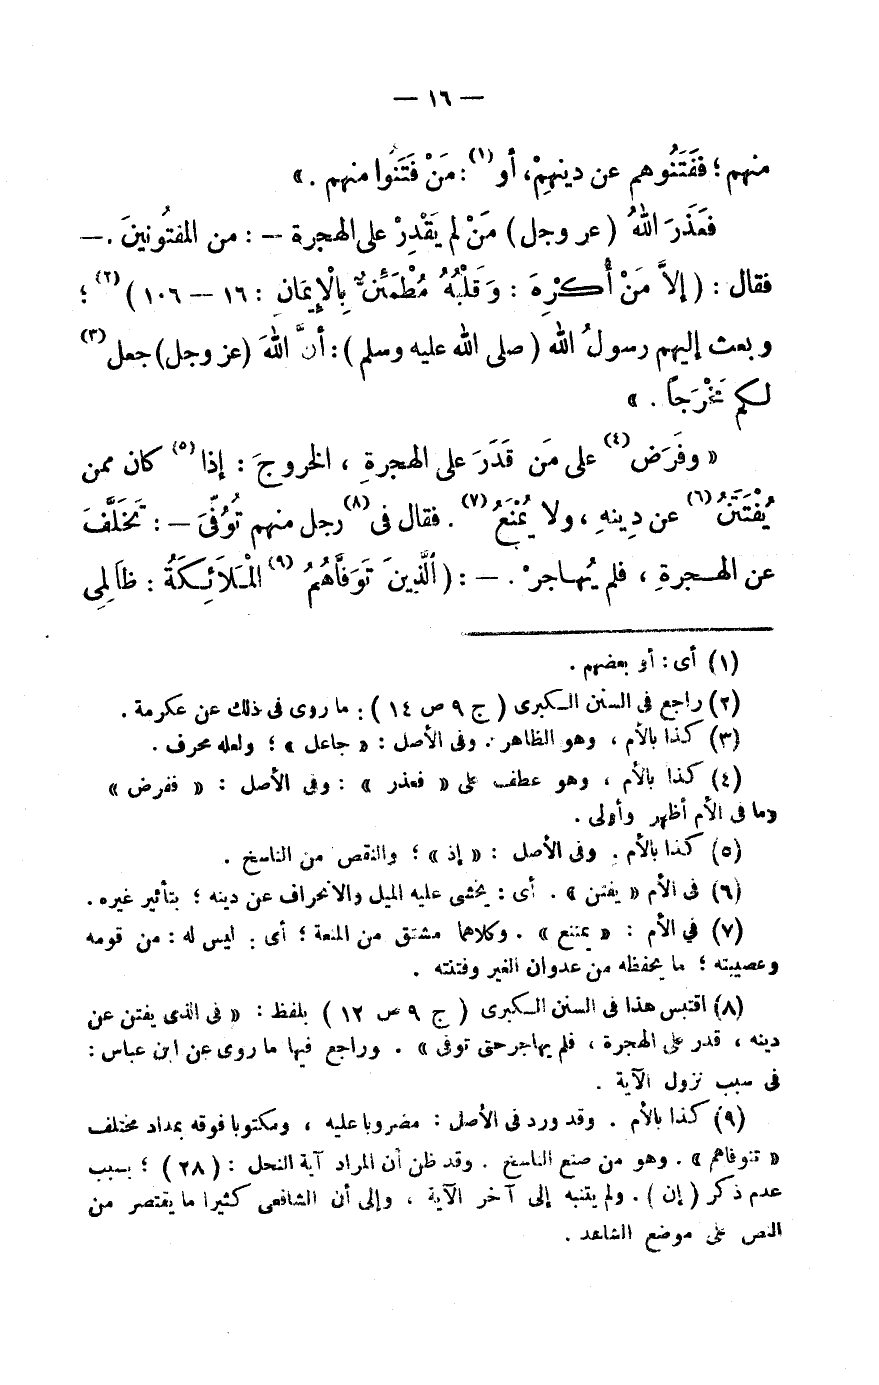 — ١٦ —
منهم ؛ فَفَتَنُوهم عن دينهِمْ، أو (١) : مَنْ فَتَنُوا منهم . »
فَعَذَرَ اللهُ ( عز وجل ) مَنْ لم يَقْدِرْ على الهجرة — : من المفتُونينَ . —
فقال : ( إِلاَّ مَنْ أُكْرِهَ : وَقَلْبُهُ مُطْمَئِنٌّ بِالْإِيمَانِ : ١٦ — ١٠٦ ) (٢) ؛
وبعث إليهم رسولُ الله ( صلى الله عليه وسلم ) : أنَّ اللهَ (عز وجل) جعل (٣)
لكم مَخْرَجاً . »
« وفَرَض (٤) على مَن قَدَرَ على الهجرةِ ، الخروجَ : إذا (٥) كان ممن
يُفْتَتَنُ (٦) عن دِينهِ ، ولا يُمْنَعُ (٧) . فقال في (٨) رجل منهم تُوُفِّىَ — : تَخَلَّفَ
عن الهجرةِ ، فلم يُهاجرْ . — : ( اَلَّذِينَ تَوَفَّاهُمُ (٩) الْمَلَائِكَةُ : ظَالِمِى
(١) أى : أو بعضهم .
(٢) راجع فى السنن الكبرى ( ج ٩ ص ١٤ ) : ما روى فى ذلك عن عكرمة .
(٣) كذا بالأم ، وهو الظاهر . وفى الأصل : « جاعل » ؛ ولعله محرف .
(٤) كذا بالأم ، وهو عطف على « فعذر » : وفى الأصل : « ففرض »
وما فى الأم أظهر وأولى .
(٥) كذا بالأم . وفى الأصل : « إذ » ؛ والنقص من الناسخ .
(٦) فى الأم « يفتن » . أى : يخشى عليه الميل والانحراف عن دينه ؛ بتأثير غيره .
(٧) في الأم : « يمتنع » . وكلاهما مشتق من المنعة ؛ أى : ليس له : من قومه
وعصبيته ؛ ما يحفظه من عدوان الغير وفتنته .
(٨) اقتبس هذا فى السنن الكبرى ( ج ٩ ص ١٢ ) بلفظ : « فى الذى يفتن عن
دينه ، قدر على الهجرة ، فلم يهاجر حتى توفى » . وراجع فيها ما روى عن ابن عباس :
فى سبب نزول الآية .
(٩) كذا بالأم . وقد ورد فى الأصل : مضروبا عليه ، ومكتوبا فوقه بمداد مختلف
« تتوفاهم » . وهو من صنع الناسخ . وقد ظن أن المراد آية النحل : ( ٢٨ ) ؛ بسبب
عدم ذكر ( إن ) . ولم يتنبه إلى آخر الآية ، وإلى أن الشافعى كثيرا ما يقتصر من
النص على موضع الشاهد .